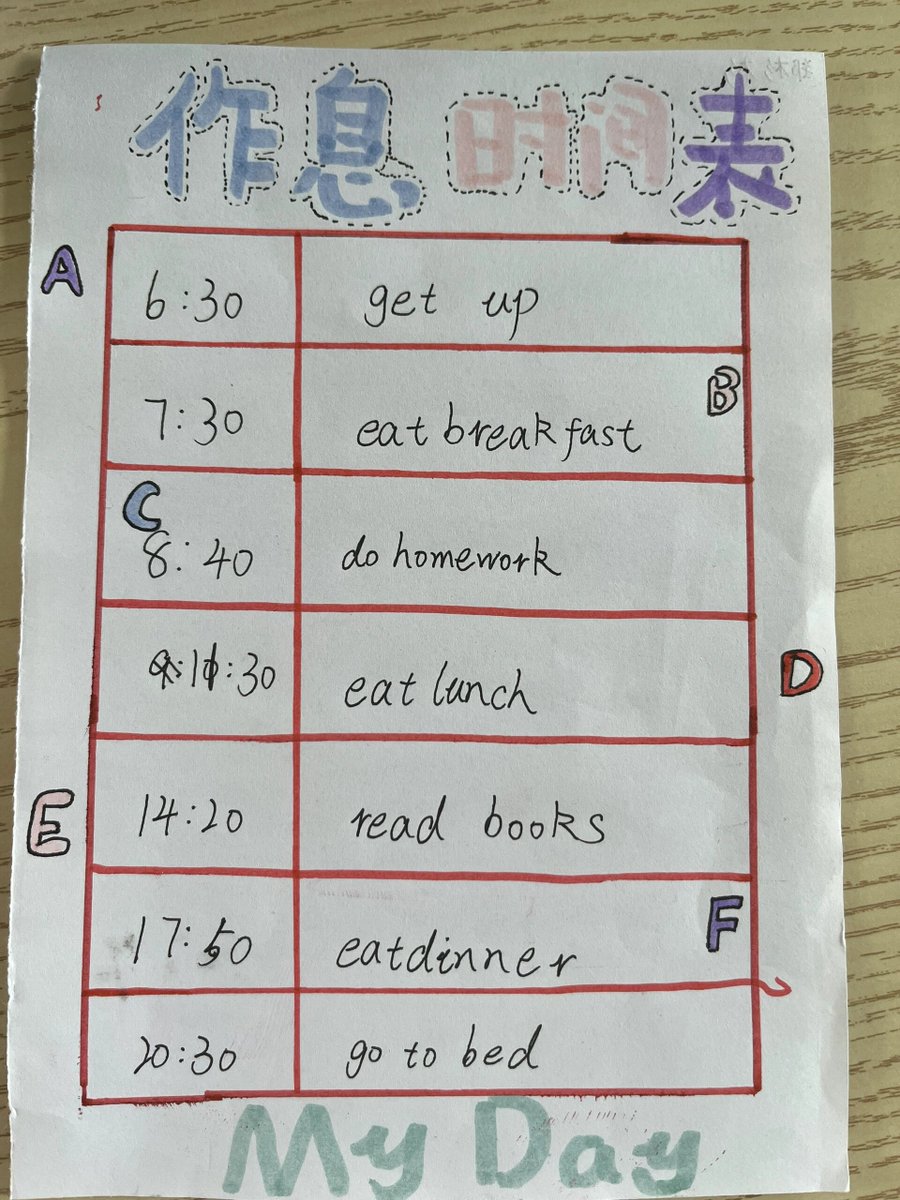 作息时间表
A
6:30 get up
B
7:30 eat breakfast
C
8:40 do homework
11:30 eat lunch
D
E
14:20 read books
F
17:50 eat dinner
20:30 go to bed
My Day